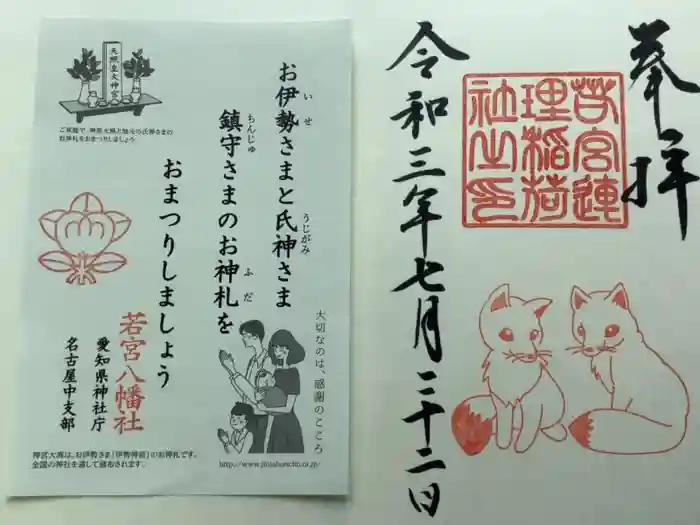 天照皇大神宮
ご家庭で、神宮大麻と地元の氏神さまの
お神札をおまつりしましょう
お伊勢さまと氏神さま
いせ
うじがみ
鎮守さまのお神札を
ちんじゅ
ふだ
おまつりしましょう
若宮八幡社
愛知県神社庁
名古屋中支部
大切なのは、感謝のこころ
神宮大麻は、お伊勢さま「伊勢神宮」のお神札です。
全国の神社を通して頒布されます。
http://www.jinjahoncho.or.jp/
奉拝
若宮運
理稲荷
社之印
令和三年七月二十二日